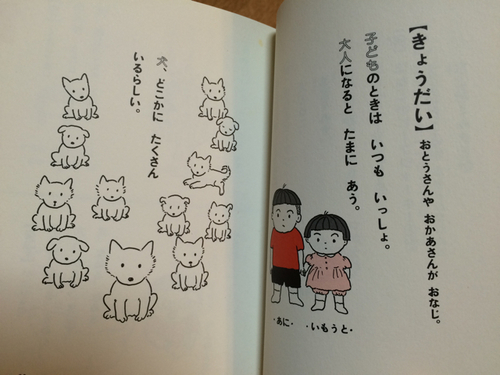 【きょうだい】
おとうさんや おかあさんが おなじ。
子どものときは いつも いっしょ。
大人になると たまに あう。
・あに・
・いもうと・
犬、どこかに たくさん
いるらしい。